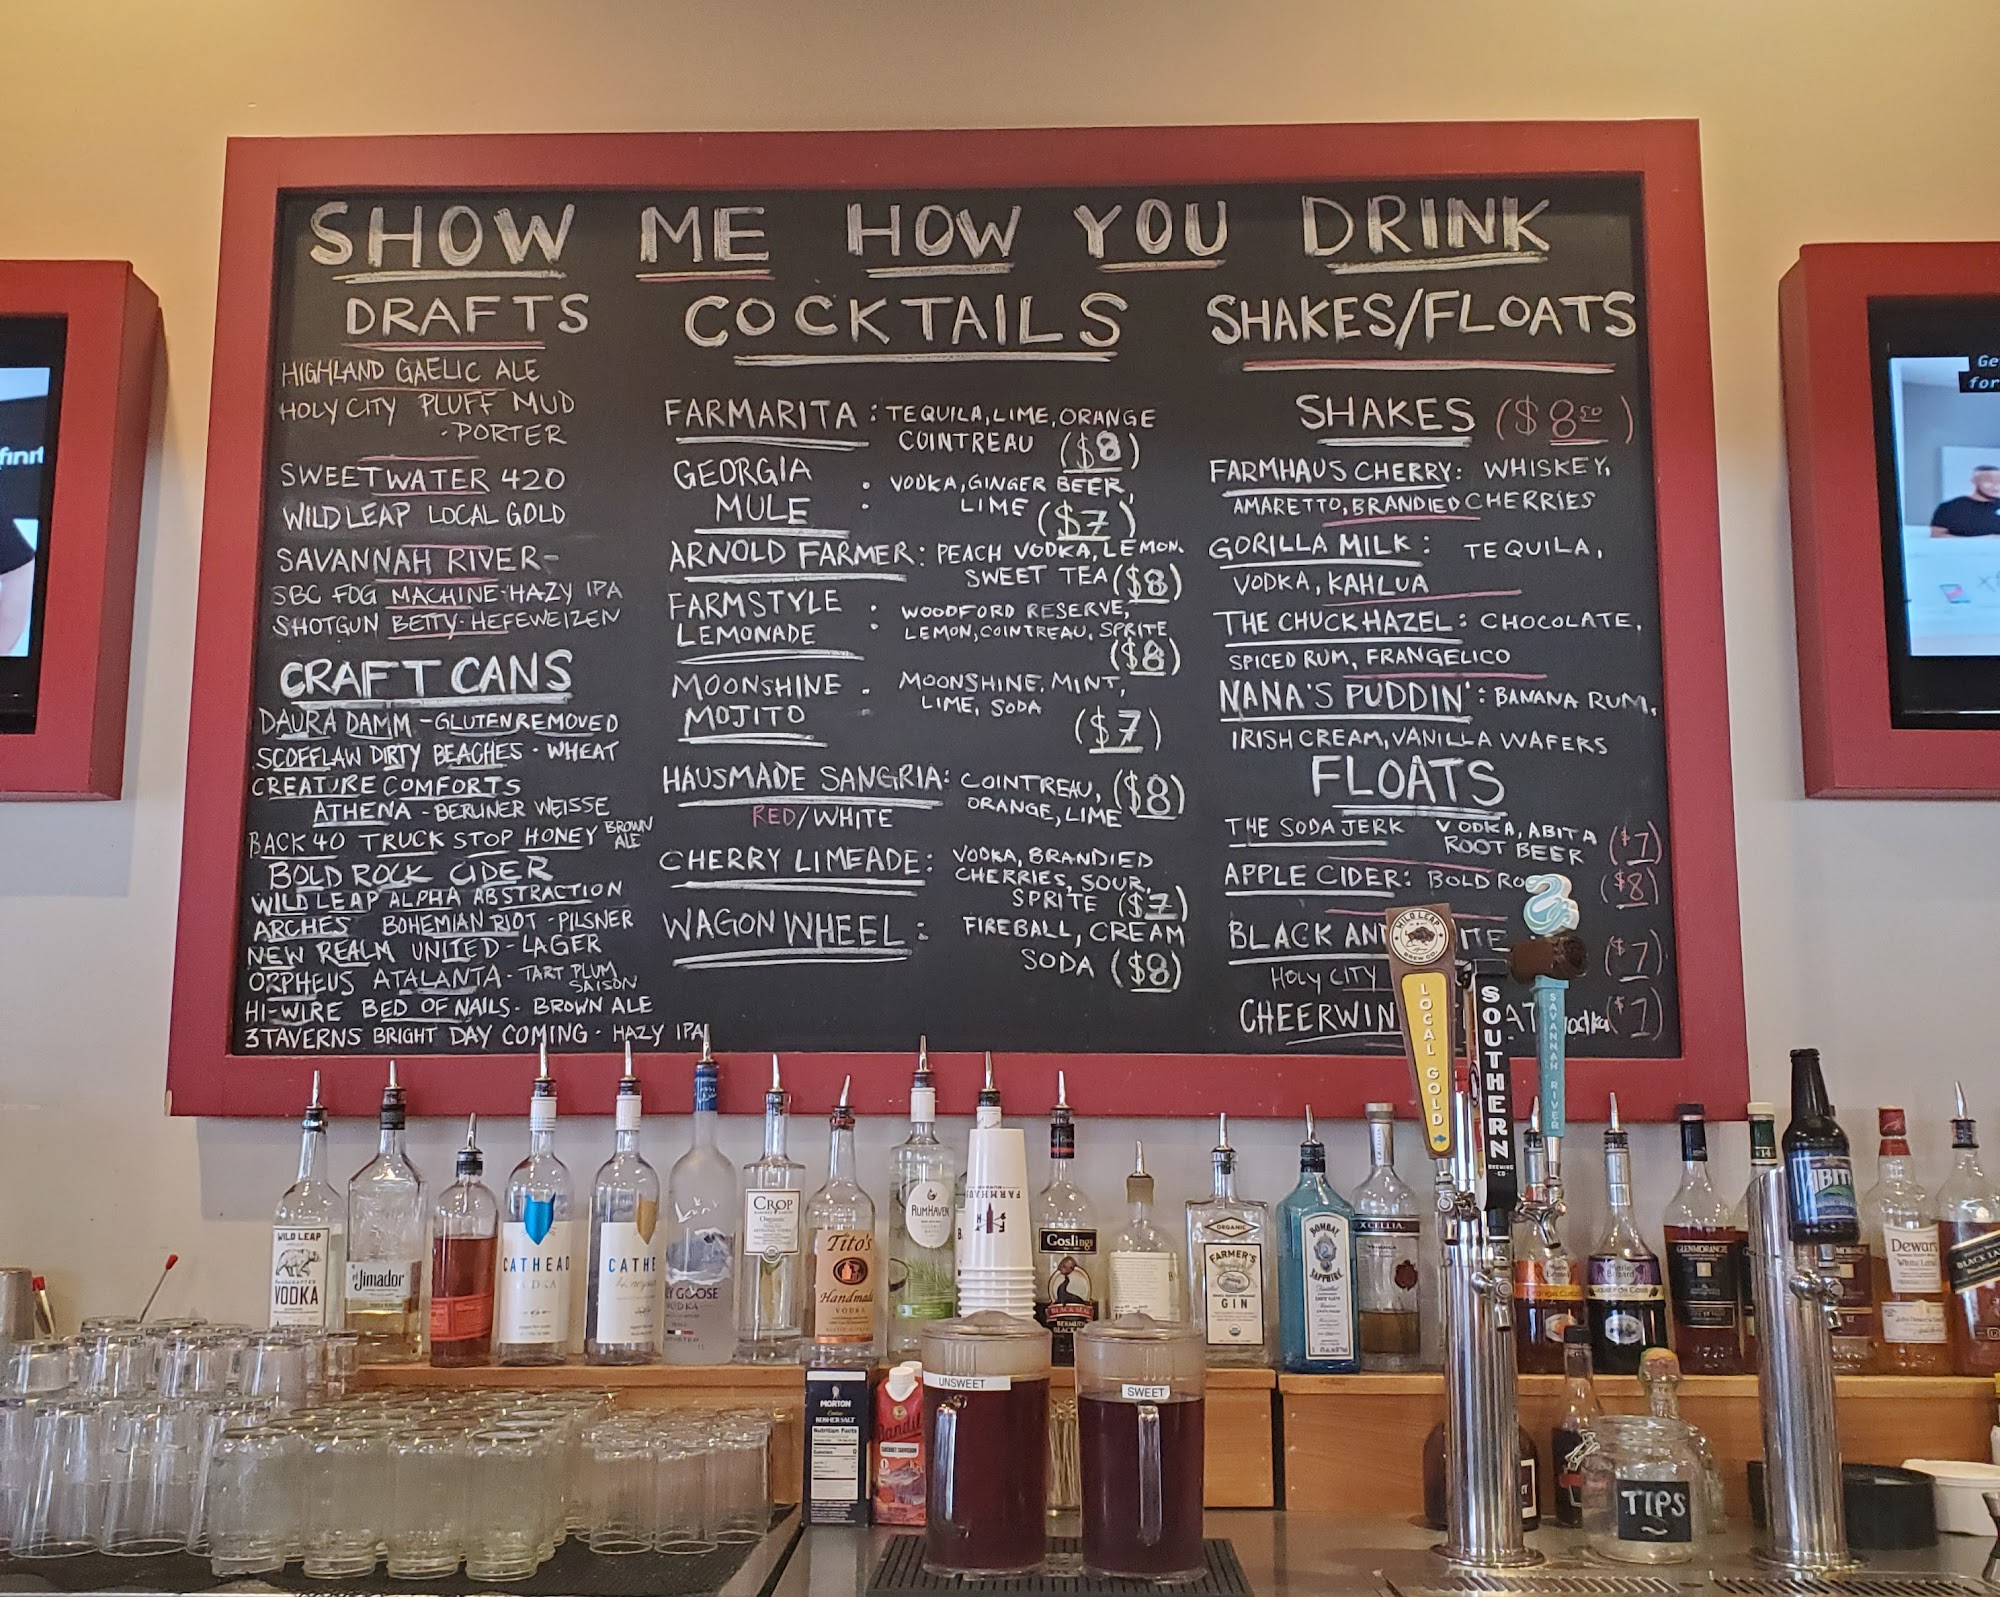 SHOW ME HOW YOU DRINK
DRAFTS
HIGHLAND GAELIC ALE
HOLY CITY PLUFF MUD
- PORTER
SWEETWATER 420
WILD LEAP LOCAL GOLD
SAVANNAH RIVER-
SBC FOG MACHINE-HAZY IPA
SHOTGUN BETTY-HEFEWEIZEN
CRAFT CANS
DAURA DAMM - GLUTEN REMOVED
SCOFFLAW DIRTY BEACHES - WHEAT
CREATURE COMFORTS
ATHENA - BERLINER WEISSE
BACK 40 TRUCK STOP HONEY BROWN ALE
BOLD ROCK CIDER
WILD LEAP ALPHA ABSTRACTION
ARCHES BOHEMIAN RIOT - PILSNER
NEW REALM UNITED - LAGER
ORPHEUS ATALANTA - TART PLUM SAISON
HI-WIRE BED OF NAILS - BROWN ALE
3 TAVERNS BRIGHT DAY COMING - HAZY IPA
COCKTAILS
FARMARITA : TEQUILA, LIME, ORANGE
COINTREAU ($8)
GEORGIA MULE : VODKA, GINGER BEER,
LIME ($7)
ARNOLD FARMER: PEACH VODKA, LEMON.
SWEET TEA ($8)
FARMSTYLE LEMONADE : WOODFORD RESERVE,
LEMON, COINTREAU, SPRITE
($8)
MOONSHINE MOJITO : MOONSHINE, MINT,
LIME, SODA
($7)
HAUSMADE SANGRIA: COINTREAU,
RED/WHITE ORANGE, LIME ($8)
CHERRY LIMEADE: VODKA, BRANDIED
CHERRIES, SOUR,
SPRITE ($7)
WAGON WHEEL : FIREBALL, CREAM
SODA ($8)
SHAKES/FLOATS
SHAKES ($8.50)
FARMHAUS CHERRY: WHISKEY,
AMARETTO, BRANDIED CHERRIES
GORILLA MILK : TEQUILA,
VODKA, KAHLUA
THE CHUCK HAZEL: CHOCOLATE,
SPICED RUM, FRANGELICO
NANA'S PUDDIN': BANANA RUM,
IRISH CREAM, VANILLA WAFERS
FLOATS
THE SODA JERK VODKA, ABITA
ROOT BEER ($7)
APPLE CIDER: BOLD RO ($8)
BLACK AN ITE ($7)
HOLY CITY
CHEERWIN vodka ($7)
WILD LEAP
BREW CO.
LOCAL GOLD
SOUTHERN
BREWING
CO
SAVANNAH RIVER
WILD LEAP
VODKA
el Jimador
CATHEAD
VODKA
CATHE
Y GOOSE
VODKA
CROP
Organic
Tito's
Handmade
VODKA
RUMHAVEN
FARMHAUS
Goslings
BLACK SEAL
ORGANIC
FARMER'S
GIN
BOMBAY
SAPPHIRE
XCELLIA
GLENMORANGIE
ABITA
Dewar's
White Label
BLACK LA
MORTON
KOSHER SALT
Nutrition Facts
Bandit
CABERNET SAUVIGNON
UNSWEET
SWEET
TIPS
finit
Ge
for